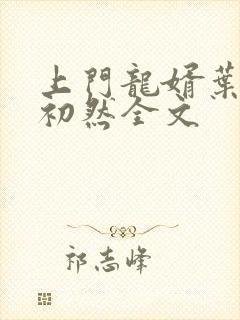 上門龍婿葉
初然全文
祁志峰